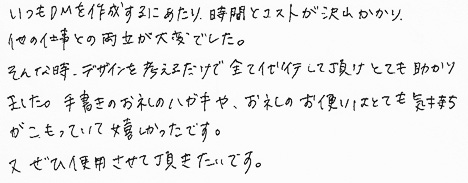 いつもDMを作成するにあたり、時間とコストが沢山かかり、
他の仕事との両立が大変でした。
そんな時、デザインを考えるだけで全て代行して頂けとても助かり
ました。手書きのお礼のハガキや、お礼のお使いはとても気持ち
がこもっていて嬉しかったです。
又ぜひ使用させて頂きたいです。